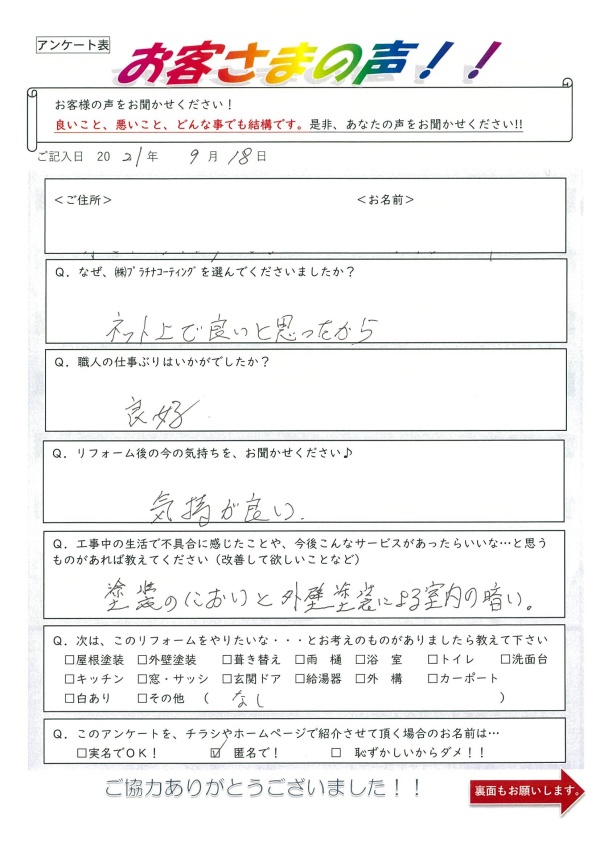 アンケート表
お客さまの声！！
お客様の声をお聞かせください！
良いこと、悪いこと、どんな事でも結構です。是非、あなたの声をお聞かせください!!
ご記入日 2021年 9月18日
＜ご住所＞ ＜お名前＞
Q．なぜ、㈱ﾌﾟﾗﾁﾅｺｰﾃｨﾝｸﾞを選んでくださいましたか？
ネット上で良いと思ったから
Q．職人の仕事ぶりはいかがでしたか？
良好
Q．リフォーム後の今の気持ちを、お聞かせください♪
気持が良い．
Q．工事中の生活で不具合に感じたことや、今後こんなサービスがあったらいいな…と思う
ものがあれば教えてください（改善して欲しいことなど）
塗装のにおいと外壁塗装による室内の暗い。
Q．次は、このリフォームをやりたいな・・・とお考えのものがありましたら教えて下さい
□屋根塗装 □外壁塗装 □葺き替え □雨 樋 □浴 室 □トイレ □洗面台
□キッチン □窓・サッシ □玄関ドア □給湯器 □外 構 □カーポート
□白あり □その他 （ なし ）
Q．このアンケートを、チラシやホームページで紹介させて頂く場合のお名前は…
□実名でOK！ ☑ 匿名で！ □ 恥ずかしいからダメ！！
ご協力ありがとうございました！！
裏面もお願いします。